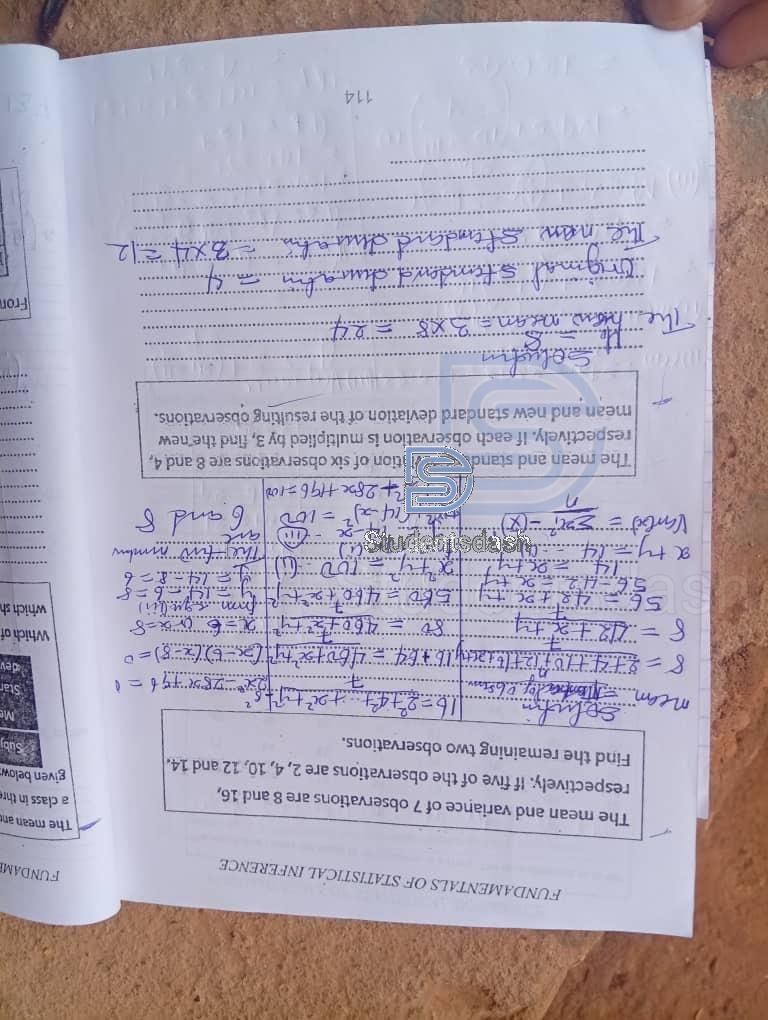 FUNDAMENTALS OF STATISTICAL INFERENCE
The mean and variance of 7 observations are 8 and 16,
respectively. If five of the observations are 2, 4, 10, 12 and 14.
Find the remaining two observations.
Solution
mean =
8 = 2+4+10+12+14+x+y
7
8 = 42+x+y
7
56 = 42+x+y
56-42 = x+y
14 = x+y
x+y = 14
Var(x) = Σx² - (x̄)²
n
16 = 2²+4²+ +x²+y² - 8²
7
16+64 = 460+x²+y²
7
80 = 460+x²+y²
7
560 = 460+x²+y²
x²+y² = 100 - (ii)
- x - (iii)
(14-x)² = 100
- 28x+196=100
2x² - 28x+96 = 0
(x-6)(x-8)=0
x=6 or x=8
from eqn (iii)
y=14-6=8
y=14-8=6
The two numbers
are
6 and 8
The mean and standard deviation of six observations are 8 and 4,
respectively. If each observation is multiplied by 3, find the new
mean and new standard deviation of the resulting observations.
Solution
= 8
The new mean = 3×8 = 24
Original standard = 4
The new standard = 3×4 = 12
114
FUNDAME
The mean and
a class in thre
given below
Subj
Me
Stan
dev
Which of
which sh
From
Studentsdash